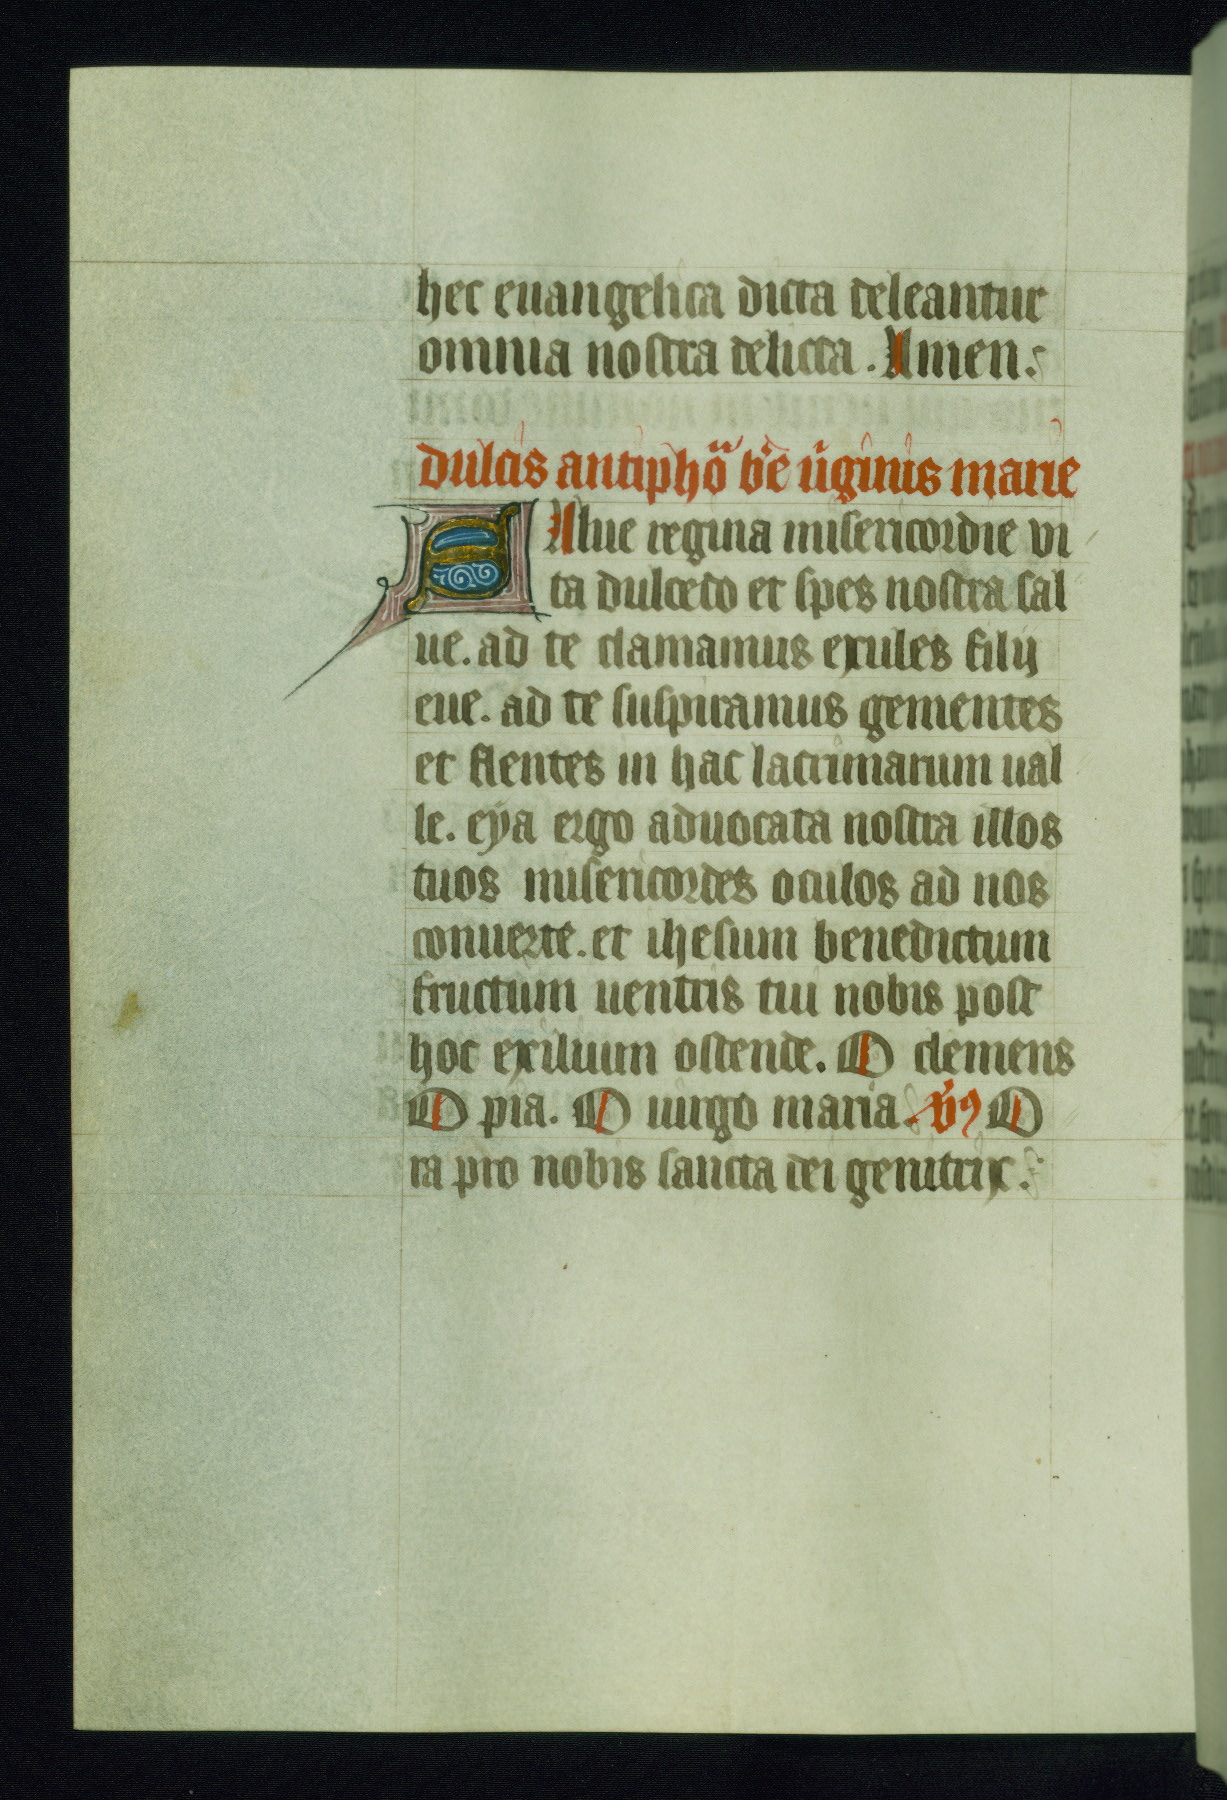 hec euangelica dicta deleantur
omnia nostra delicta. Amen.
dulcis antiphõa bẽ uginis marie
SAlue regina misericordie vi
ta dulcedo et spes nostra sal
ue. ad te clamamus exules filij
eue. ad te suspiramus gementes
et flentes in hac lacrimarum ual
le. eya ergo aduocata nostra illos
tuos misericordes oculos ad nos
conuerte. et ihesum benedictum
fructum uentris tui nobis post
hoc exilium ostende. O clemens
O pia. O uirgo maria. O
ra pro nobis sancta dei genitrix.